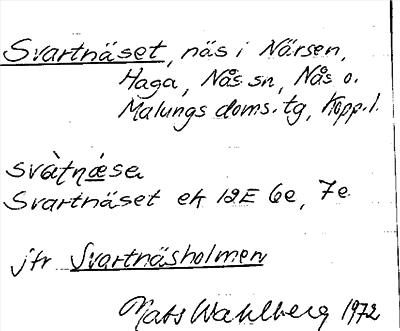 Svartnäset, näs i Närsen,
Haga, Nås sn, Nås o.
Malungs doms.tg, Kopp.l.
svàṭṇǽsen
Svartnäset ek 12E 6e, 7e
jfr Svartnäsholmen
Mats Wahlberg 1972